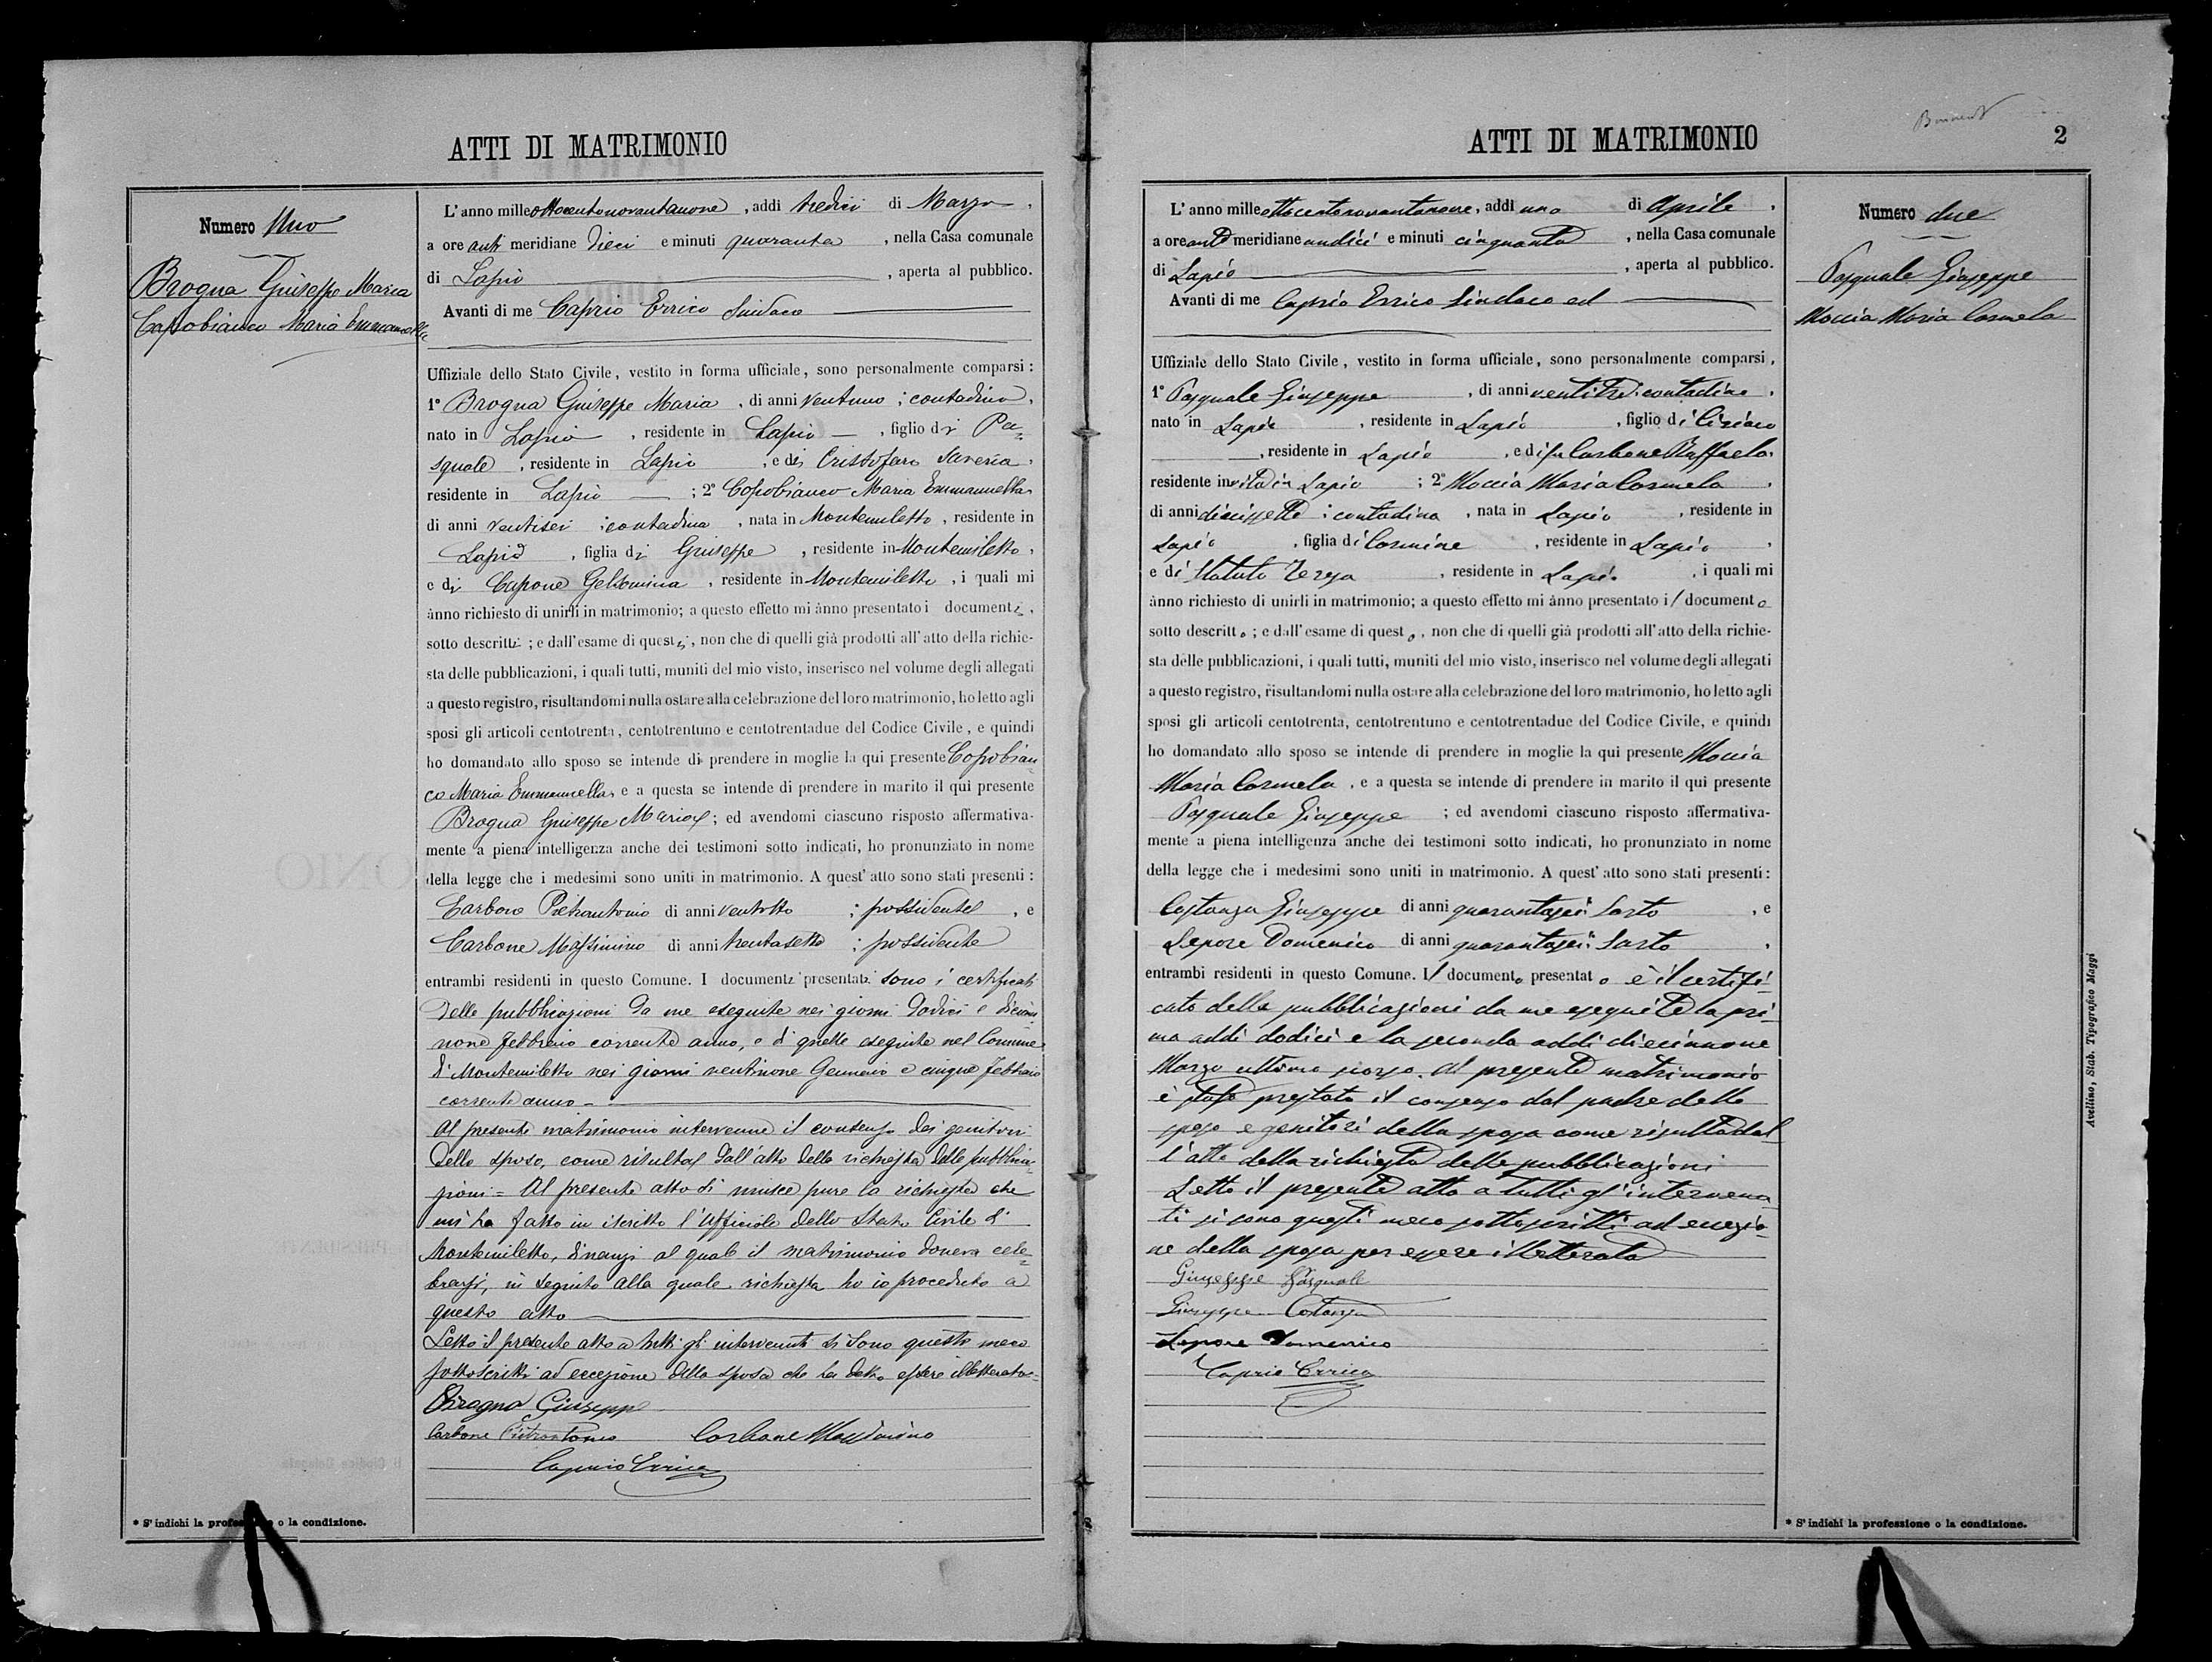 ATTI DI MATRIMONIO
Numero Uno
Brogna Giuseppe Maria
Capobianco Maria Emmanuella
L'anno milleottocentonovantanove, addi tredici di Marzo,
a ore anti meridiane dieci e minuti quaranta, nella Casa comunale
di Lapio, aperta al pubblico.
Avanti di me Caprio Errico Sindaco
Uffiziale dello Stato Civile, vestito in forma ufficiale, sono personalmente comparsi:
1° Brogna Giuseppe Maria, di anni ventuno; contadino,
nato in Lapio, residente in Lapio, figlio di Pa-
squale, residente in Lapio, e di Cristofaro Saveria,
residente in Lapio; 2° Capobianco Maria Emmanuella
di anni ventisei; contadina, nata in Montemiletto, residente in
Lapio, figlia di Giuseppe, residente in Montemiletto,
e di Capone Gelsomina, residente in Montemiletto, i quali mi
ànno richiesto di unirli in matrimonio; a questo effetto mi ànno presentato i documenti,
sotto descritti; e dall'esame di questi, non che di quelli già prodotti all'atto della richie-
sta delle pubblicazioni, i quali tutti, muniti del mio visto, inserisco nel volume degli allegati
a questo registro, risultandomi nulla ostare alla celebrazione del loro matrimonio, ho letto agli
sposi gli articoli centotrenta, centotrentuno e centotrentadue del Codice Civile, e quindi
ho domandato allo sposo se intende di prendere in moglie la qui presente Capobian-
co Maria Emmanuella, e a questa se intende di prendere in marito il qui presente
Brogna Giuseppe Maria; ed avendomi ciascuno risposto affermativa-
mente a piena intelligenza anche dei testimoni sotto indicati, ho pronunziato in nome
della legge che i medesimi sono uniti in matrimonio. A quest'atto sono stati presenti:
Carbone Pietrantonio di anni ventotto; possidente, e
Carbone Massimino di anni trentasette; possidente
entrambi residenti in questo Comune. I documenti presentati sono i certificati
delle pubblicazioni da me eseguite nei giorni dodici e dician-
nove febbraio corrente anno, e di quelle eseguite nel Comune
di Montemiletto nei giorni ventinove Gennaio e cinque febbraio
corrente anno
Al presente matrimonio intervenne il consenso dei genitori
dello sposo, come risulta dall'atto della richiesta delle pubblica-
zioni = Al presente atto di unisce pure la richiesta che
mi ha fatto in iscritto l'Ufficiale dello Stato Civile di
Montemiletto, dinanzi al quale il matrimonio doveva cele-
brarsi, in seguito alla quale richiesta ho io proceduto a
questo atto
Letto il presente atto a tutti gli intervenuti si sono questi meco
sottoscritti ad eccezione della sposa che ha detto essere illetterata
Brogna Giuseppe
Carbone Pietrantonio Carbone Massimino
Caprio Errico
* S'indichi la professione o la condizione.
ATTI DI MATRIMONIO
2
Numero due
Pasquale Giuseppe
Moccia Maria Carmela
L'anno milleottocentonovantanove, addi uno di Aprile,
a ore ante meridiane undici e minuti cinquanta, nella Casa comunale
di Lapio, aperta al pubblico.
Avanti di me Caprio Errico Sindaco ed
Uffiziale dello Stato Civile, vestito in forma ufficiale, sono personalmente comparsi,
1° Pasquale Giuseppe, di anni ventitre; contadino,
nato in Lapio, residente in Lapio, figlio di Ciriaco
, residente in Lapio, e di fu Carbone Raffaela,
residente in vita in Lapio; 2° Moccia Maria Carmela,
di anni diciassette; contadina, nata in Lapio, residente in
Lapio, figlia di Carmine, residente in Lapio,
e di Statuto Teresa, residente in Lapio, i quali mi
ànno richiesto di unirli in matrimonio; a questo effetto mi ànno presentato il documento
sotto descritto; e dall'esame di questo, non che di quelli già prodotti all'atto della richie-
sta delle pubblicazioni, i quali tutti, muniti del mio visto, inserisco nel volume degli allegati
a questo registro, risultandomi nulla ostare alla celebrazione del loro matrimonio, ho letto agli
sposi gli articoli centotrenta, centotrentuno e centotrentadue del Codice Civile, e quindi
ho domandato allo sposo se intende di prendere in moglie la qui presente Moccia
Maria Carmela, e a questa se intende di prendere in marito il qui presente
Pasquale Giuseppe; ed avendomi ciascuno risposto affermativa-
mente a piena intelligenza anche dei testimoni sotto indicati, ho pronunziato in nome
della legge che i medesimi sono uniti in matrimonio. A quest'atto sono stati presenti:
Costanza Giuseppe di anni quarantasei: Sarto, e
Lepore Domenico di anni quarantasei: Sarto,
entrambi residenti in questo Comune. Il documento presentato è il certifi-
cato delle pubblicazioni da me eseguite la pri-
ma addi dodici e la seconda addi diecinnove
Marzo ultimo scorso. Al presente matrimonio
è stato prestato il consenso dal padre dello
sposo e genitori della sposa come risulta dal-
l'atto della richiesta delle pubblicazioni
Letto il presente atto a tutti gl'intervenu-
ti si sono questi meco sottoscritti ad eccezio-
ne della sposa per essere illetterata
Giuseppe Pasquale
Giuseppe Costanza
Lepore Domenico
Caprio Errico
* S'indichi la professione o la condizione.
Avellino, Stab. Tipografico Maggi